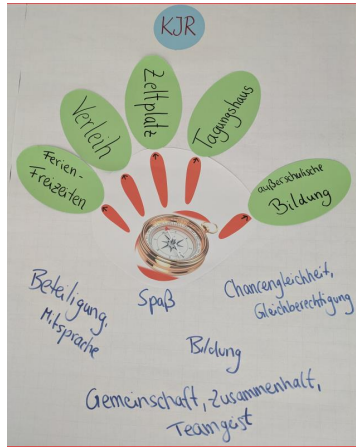 KJR
Ferien-
Freizeiten
Verleih
Zeltplatz
Tagungshaus
außerschulische
Bildung
Beteiligung,
Mitsprache
Spaß
Chancengleichheit,
Gleichberechtigung
Bildung
Gemeinschaft, Zusammenhalt,
Teamgeist